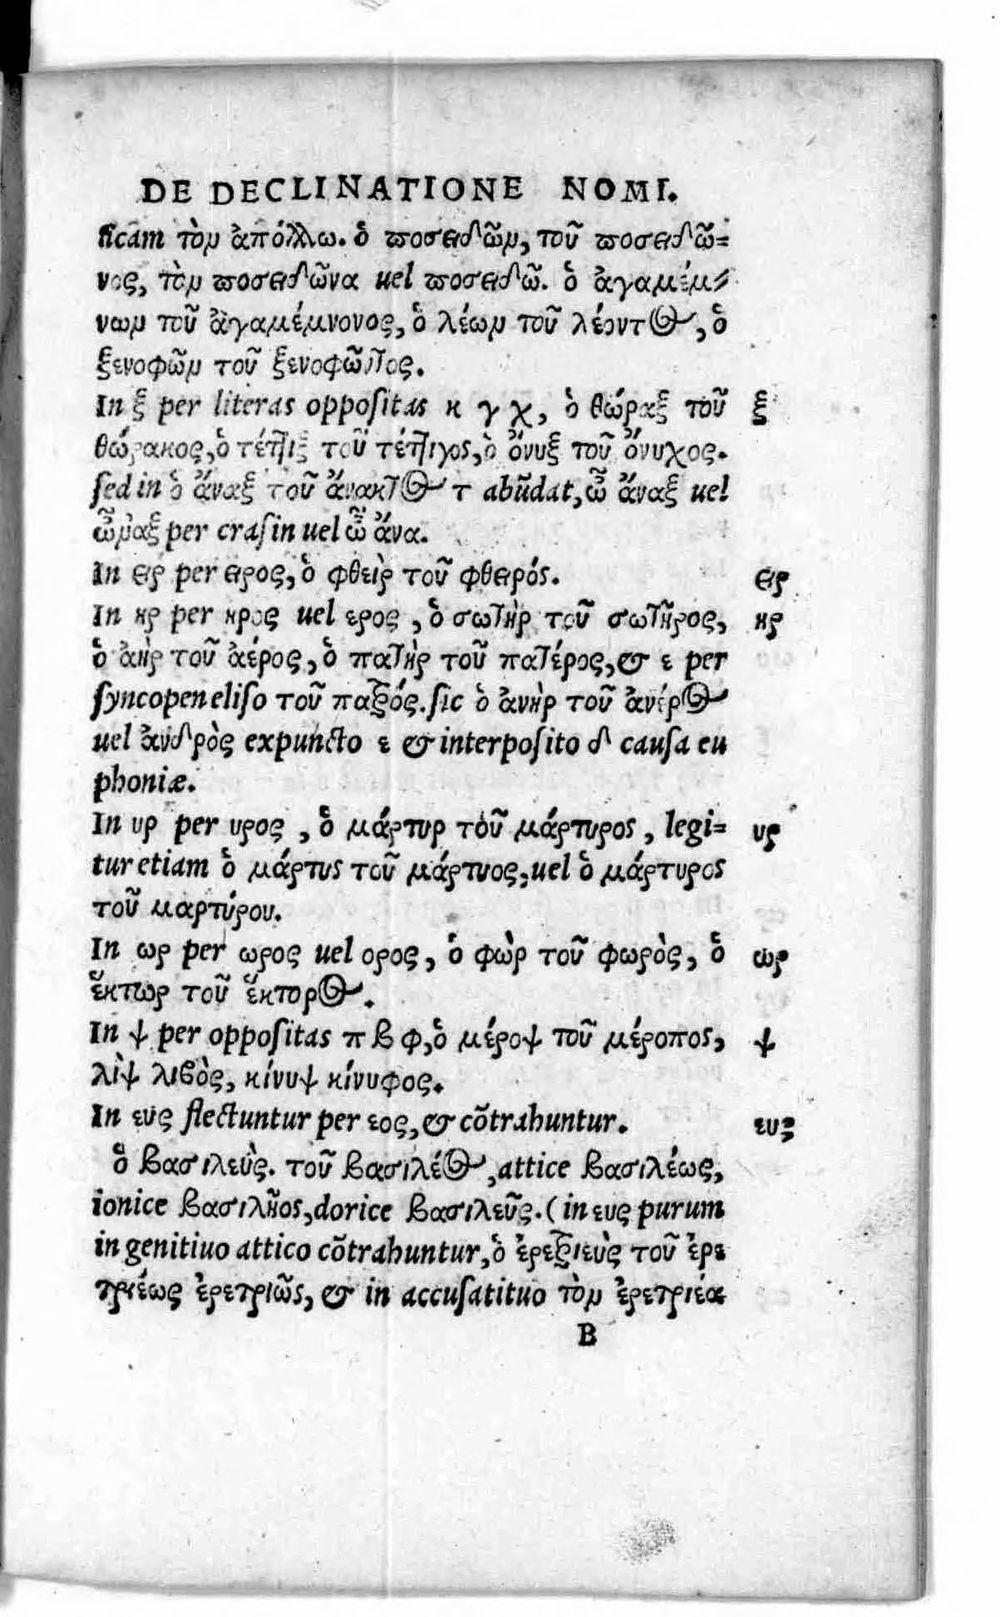 DE DECLINATIONE NOMI.
ſicam τὸν ἀπόλλω. ὁ ποσειδῶν, τοῦ ποσειδῶ=
νος, τὸν ποσειδῶνα uel ποσειδῶ. ὁ ἀγαμέμ=
νων τοῦ ἀγαμέμνονος, ὁ λέων τοῦ λέοντος, ὁ
ξενοφῶν τοῦ ξενοφῶντος.
In ξ per literas oppoſitas κ γ χ, ὁ θώραξ τοῦ ξ
θώρακος, ὁ τέττιξ τοῦ τέττιγος, ὁ ὄνυξ τοῦ ὄνυχος.
ſed in ὁ ἄναξ τοῦ ἄνακτος τ abũdat, ὦ ἄναξ uel
ὦναξ per craſin uel ὦ ἄνα.
In ειρ per ειρος, ὁ φθεὶρ τοῦ φθειρός. ειρ
In ηρ per ηρος uel ερος, ὁ σωτὴρ τοῦ σωτῆρος, ηρ
ὁ ἀὴρ τοῦ ἀέρος, ὁ πατὴρ τοῦ πατέρος, & ε per
ſyncopen eliſo τοῦ πατρός. ſic ὁ ἀνὴρ τοῦ ἀνέρος
uel ἀνδρὸς expuncto ε & interpoſito δ cauſa eu
phoniæ.
In υρ per υρος, ὁ μάρτυρ τοῦ μάρτυρος, legi= υρ
tur etiam ὁ μάρτυς τοῦ μάρτυος, uel ὁ μάρτυρος
τοῦ μαρτύρου.
In ωρ per ωρος uel ορος, ὁ φὼρ τοῦ φωρὸς, ὁ ωρ
ἕκτωρ τοῦ ἕκτορος.
In ψ per oppoſitas π β φ, ὁ μέροψ τοῦ μέροπος, ψ
λὶψ λιβὸς, κίνυψ κίνυφος.
In ευς flectuntur per εος, & cõtrahuntur. ευς
ὁ βασιλεὺς. τοῦ βασιλέος, attice βασιλέως,
ionice βασιλῆος, dorice βασιλεῦς. (in ευς purum
in genitiuo attico cõtrahuntur, ὁ ἐρετριεὺς τοῦ ἐρε
τριέως ἐρετριῶς, & in accuſatituo τὸν ἐρετριέα
B